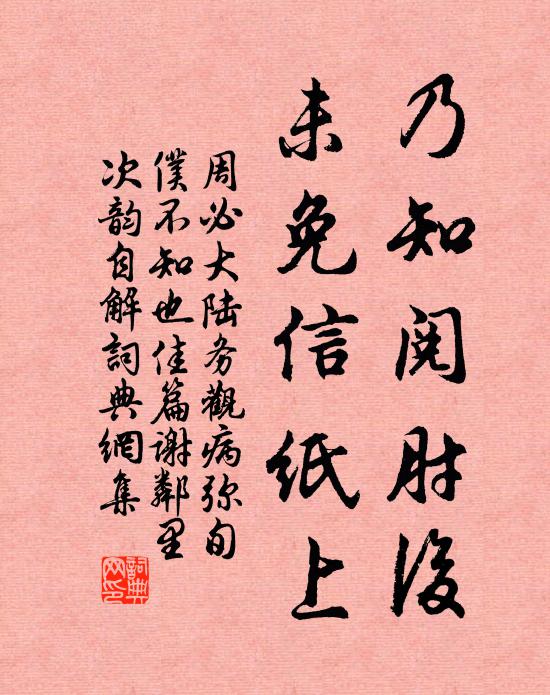 乃知阅肘後
未免信纸上
周必大陆务觀病弥旬
僕不知也佳篇谢鄰里
次韵自解詞典網集
詞典网印